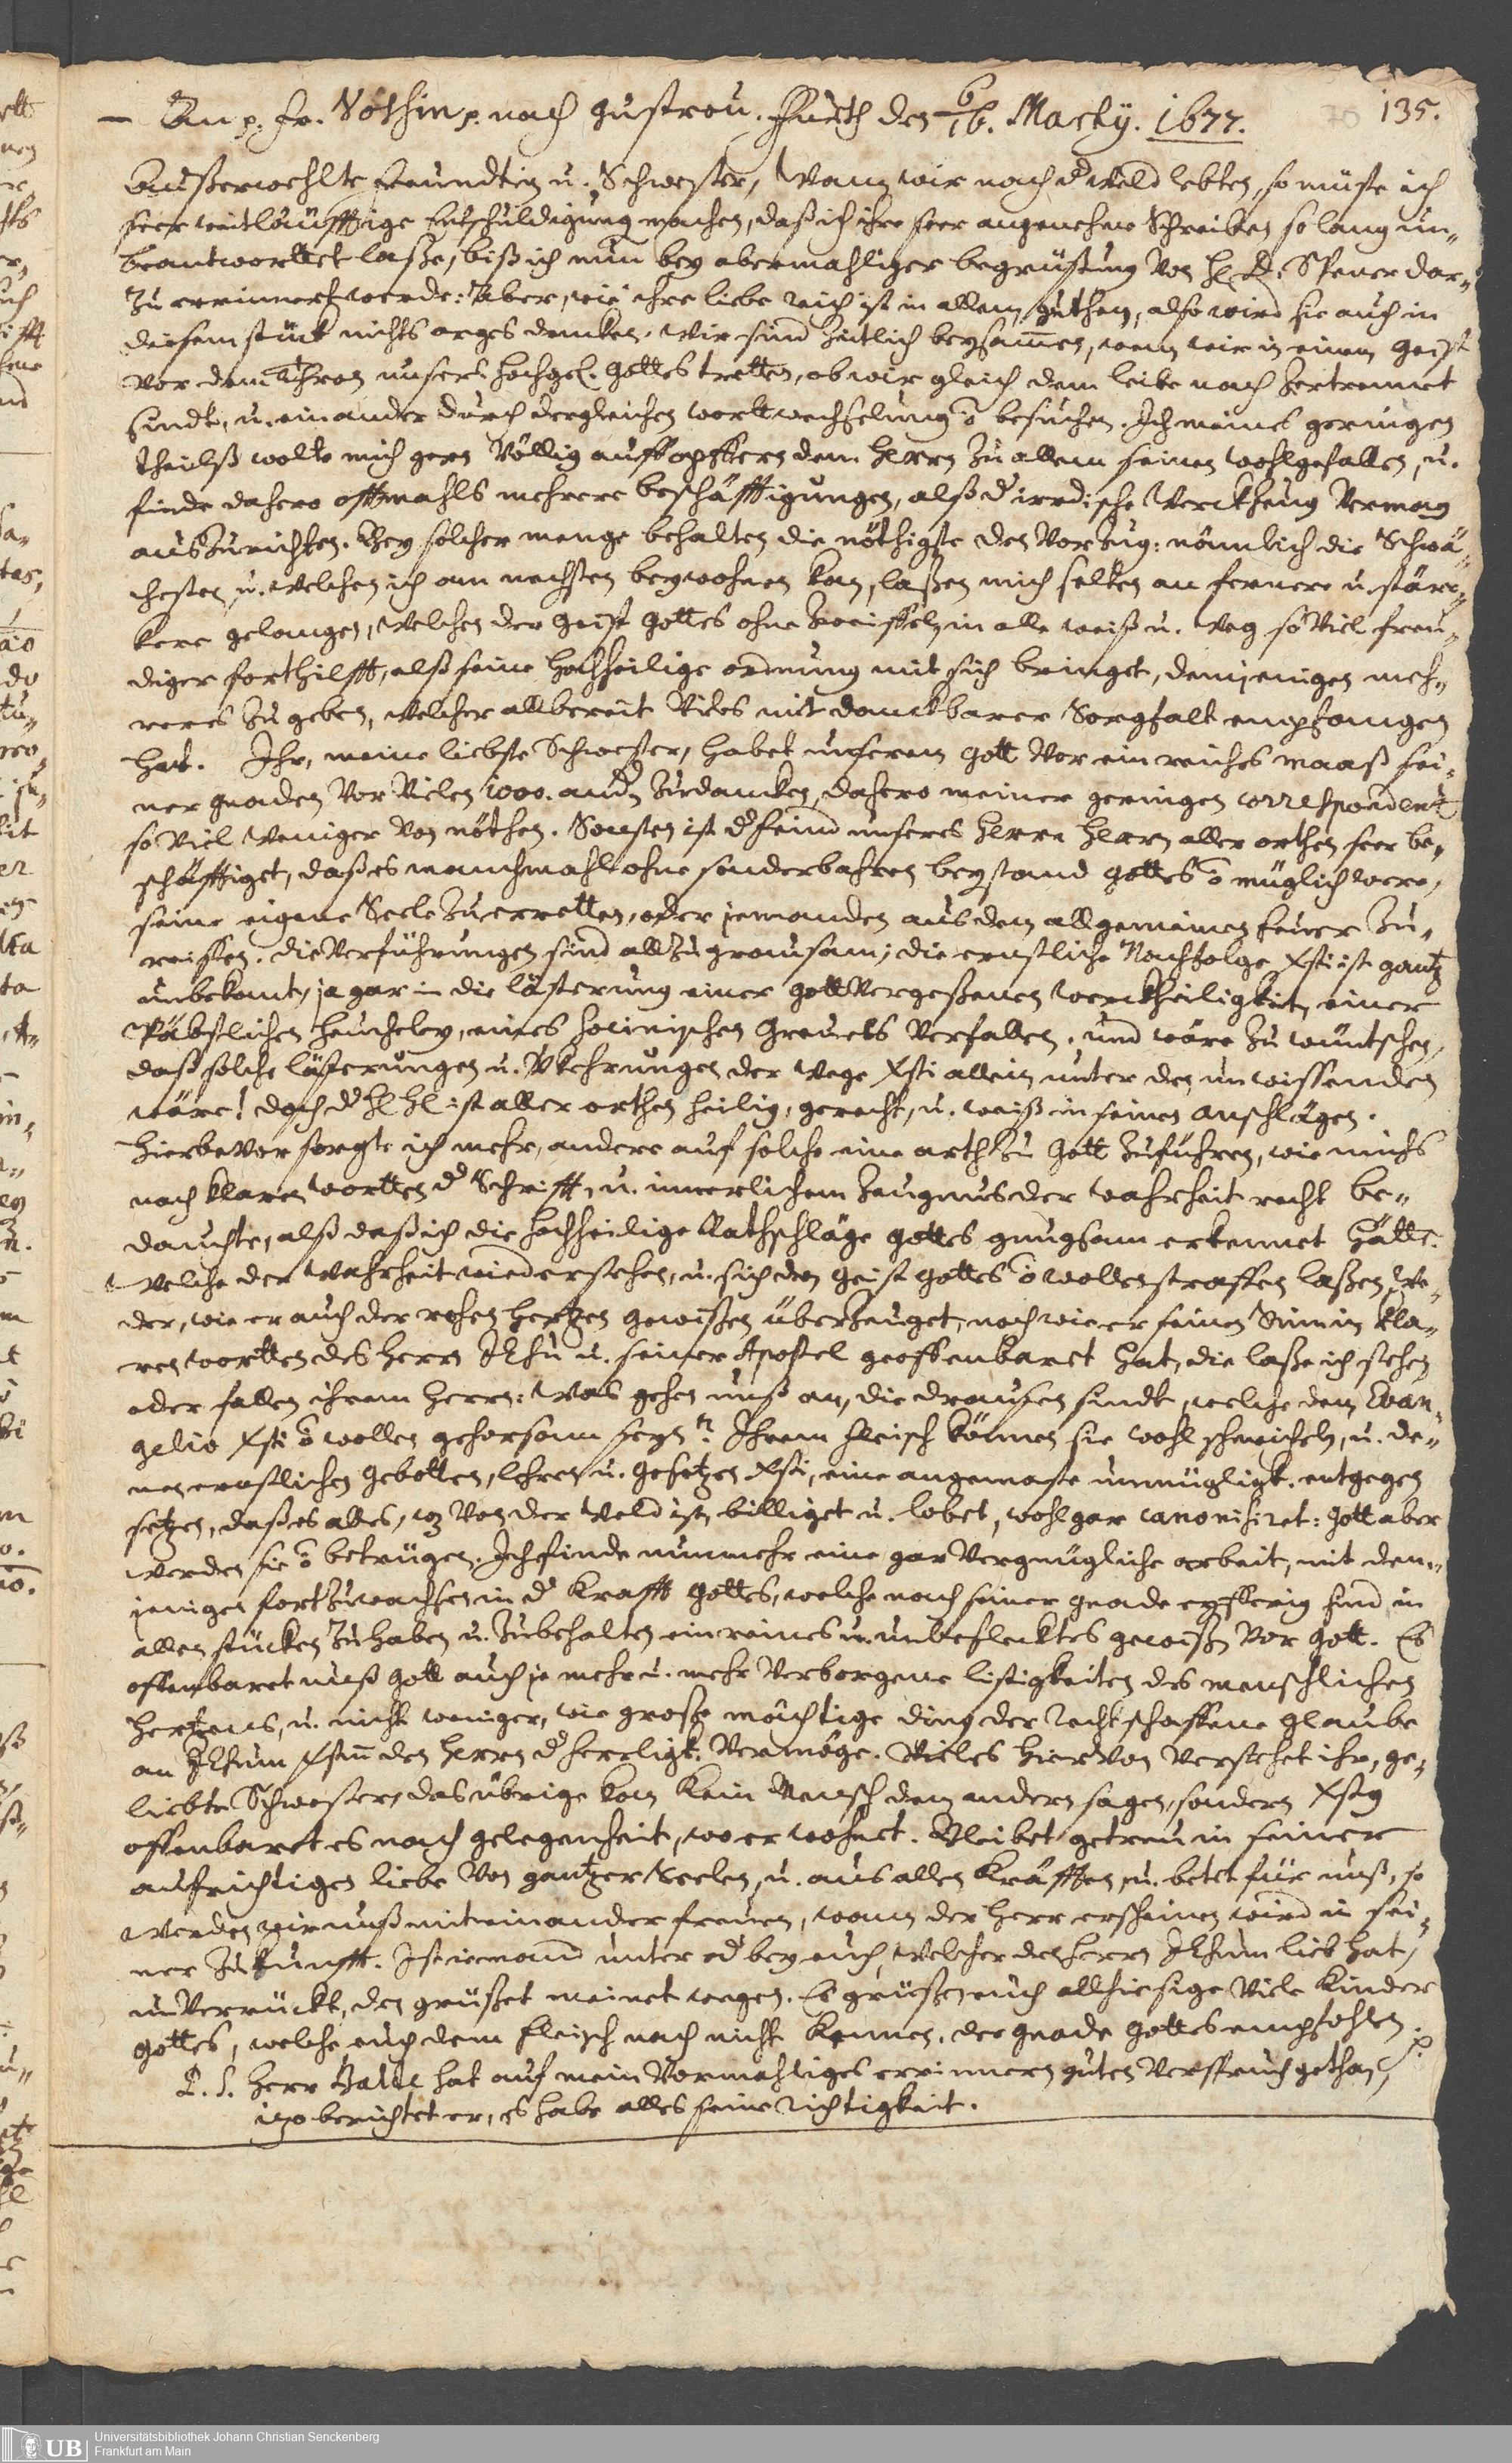 135.
An p. Fr. Nöthin p. nach Gustrou. Ffurth den 6/16. Martÿ. 1677.
Außerwehlte freundtin u. Schwester, Wann wir nach d̕ Weld lebten, so müste ich
seer weitläufftige entschuldigung machen, daß ich ihre seer angenehme Schreiben so lang un„
beantworttet laße, biß ich nun bey abermahliger begrüßung von H. D. Spener dar„
zu errinnert werde: Aber, wie ihre liebe reich ist in allem guthen, also wird sie auch in
diesem stück nichts arges dencken. Wir sind zeitlich beysam̅en, wenn wir in einem Geist
vor dem Thron unsers hochgel. Gottes tretten, ob wir gleich dem leibe nach zertrennet
sindt, u. einander durch dergleichen wortt wechselung õ besuchen. Ich meines geringen
theilß wolte mich gern völlig auffopffern dem Herrn zu allem seinen wohlgefallen, u.
finde dahero offtmahls mehrere beschäfftigungen, alß d̕ irrdische Werckzeug vermag
auszurichten. Bey solcher menge behalten die nöthigste den vorzug: nämlich die Schwä„
chesten u. welchen ich am nechsten beywohnen kan, laßen mich selten an fernere u. stärc„
kere gelangen, welchen der Geist Gottes ohne zweiffel in alle weiß u. weg so viel freu„
diger forthilfft, alß seine hochheilige ordnung mit sich bringet, demjenigen meh„
reres zu geben, welcher allbereit vieles mit danckbarer Sorgfalt empfangen
hat. Ihr, meine liebste Schwester, habet unserem Gott vor ein reiches maaß sei„
ner gnaden vor vielen 1000. andn̅ zu dancken, dahero meiner geringen correspondentz
so viel weniger von nöthen. Sonsten ist d̕ feind unseres Herrn Herrn aller orthen seer be„
schäfftiget, daß es manchmahl ohne sonderbahren beystand Gottes õ müglich were,
seine eigene Seele zu erretten, oder jemanden aus dem allgemeinen feuer zu„
reissen. Die verführungen sind allzu grausam; die ernstliche Nachfolge Xsti ist gantz
unbekant, ja gar in die lästerung einer Gott vergeßenen werckheiligkeit, einer
Päbstlichen heucheley, eines Socinischen Greuels verfallen. und wäre zu wüntschen,
daß solche lästerungen u. v̕kehrungen der wege Xsti allein unter den unwissenden
wäre! doch d̕ H. H. ist aller orthen heilig, gerecht, u. weiß in seinen anschlägen.
Hierbevor sorgte ich mehr, andere auf solche eine arth zu Gott zuführen, wie michs
nach klaren wortten d̕ Schrifft, u. innerlichem zeugnus der wahrheit recht be„
dauchte, alß daß ich die hochheilige Rathschläge Gottes gnugsam erkennet hätte.
Welche der wahrheit wiederstehen, u. sich den Geist Gottes õ wollen straffen laßen, we„
der, wie er auch der rohen hertzen gewissen überzeuget, noch wie er seinen Sinn in kla„
ren wortten des Herrn JEsu u. seiner Apostel geoffenbaret hat, die laße ich stehen
oder fallen ihrem Herrn: Was gehen unß an, die draussen sindt, welche dem Evan„
gelio Xsti õ wollen gehorsam seyn? Ihrem fleisch können sie wohl schmeicheln, u. de„
nen ernstlichen Gebotten, lehren u. Gesetzen Xsti, eine angemaste unmügligk. entgegen
setzen, daß es alles, wz von der weld ist, billiget u. lobet, wohl gar canonisiret: Gott aber
werden sie õ betrügen. Ich finde nunmehr eine gar vergnügliche arbeit, mit den„
jenigen fortzuwachsen in d̕ krafft Gottes, welche nach seiner gnade eyfferig sind, in
allen stücken zu haben u. zubehalten ein reines u. unbeflecktes gewissen vor Gott. Es
offenbaret unß Gott auch je mehr u. mehr verborgene listigkeiten des menschlichen
hertzens, u. nicht weniger, wie große mächtige ding der rechtschaffene glaube
an JEsum Xstum̅ den Herrn d̕ herrligk. vermöge. Vieles hiervon verstehet ihr, ge„
liebte Schwester, das übrige kan kein Mensch dem andern sagen, sondern Xstg
offenbaret es nach gelegenheit, wo er wohnet. Bleibet getreu in seiner
aufrichtigen liebe von gantzer Seelen, u. aus allen kräfften, u. betet für unß, so
werden wir unß miteinander freuen, wann der Herr erscheinen wird in sei„
ner zukunfft. Ist iemand unter od̕ bey euch, welcher den Herrn JEsum lieb hat,
unverruckt, den grüßet meinet wegen. Es grüßen euch allhiesige viele kinder
Gottes, welche euch dem fleisch nach nicht kennen. der gnade Gottes empfohlen. p
P. S. Herr Balde hat auf mein vormahliges errinnern guten verspruch gethan,
itzo berichtet er, es habe alles seine richtigkeit.
UB
Universitätsbibliothek Johann Christian Senckenberg
Frankfurt am Main